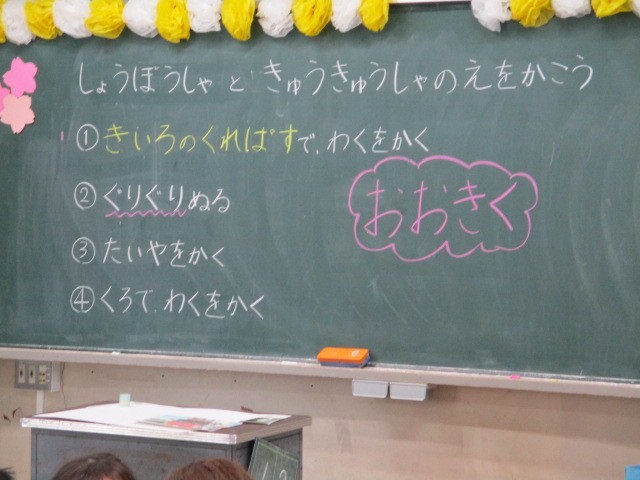 しょうぼうしゃ と きゅうきゅうしゃのえをかこう
① きいろのくれぱすで、わくをかく
② ぐりぐりぬる
おおきく
③ たいやをかく
④ くろで、わくをかく